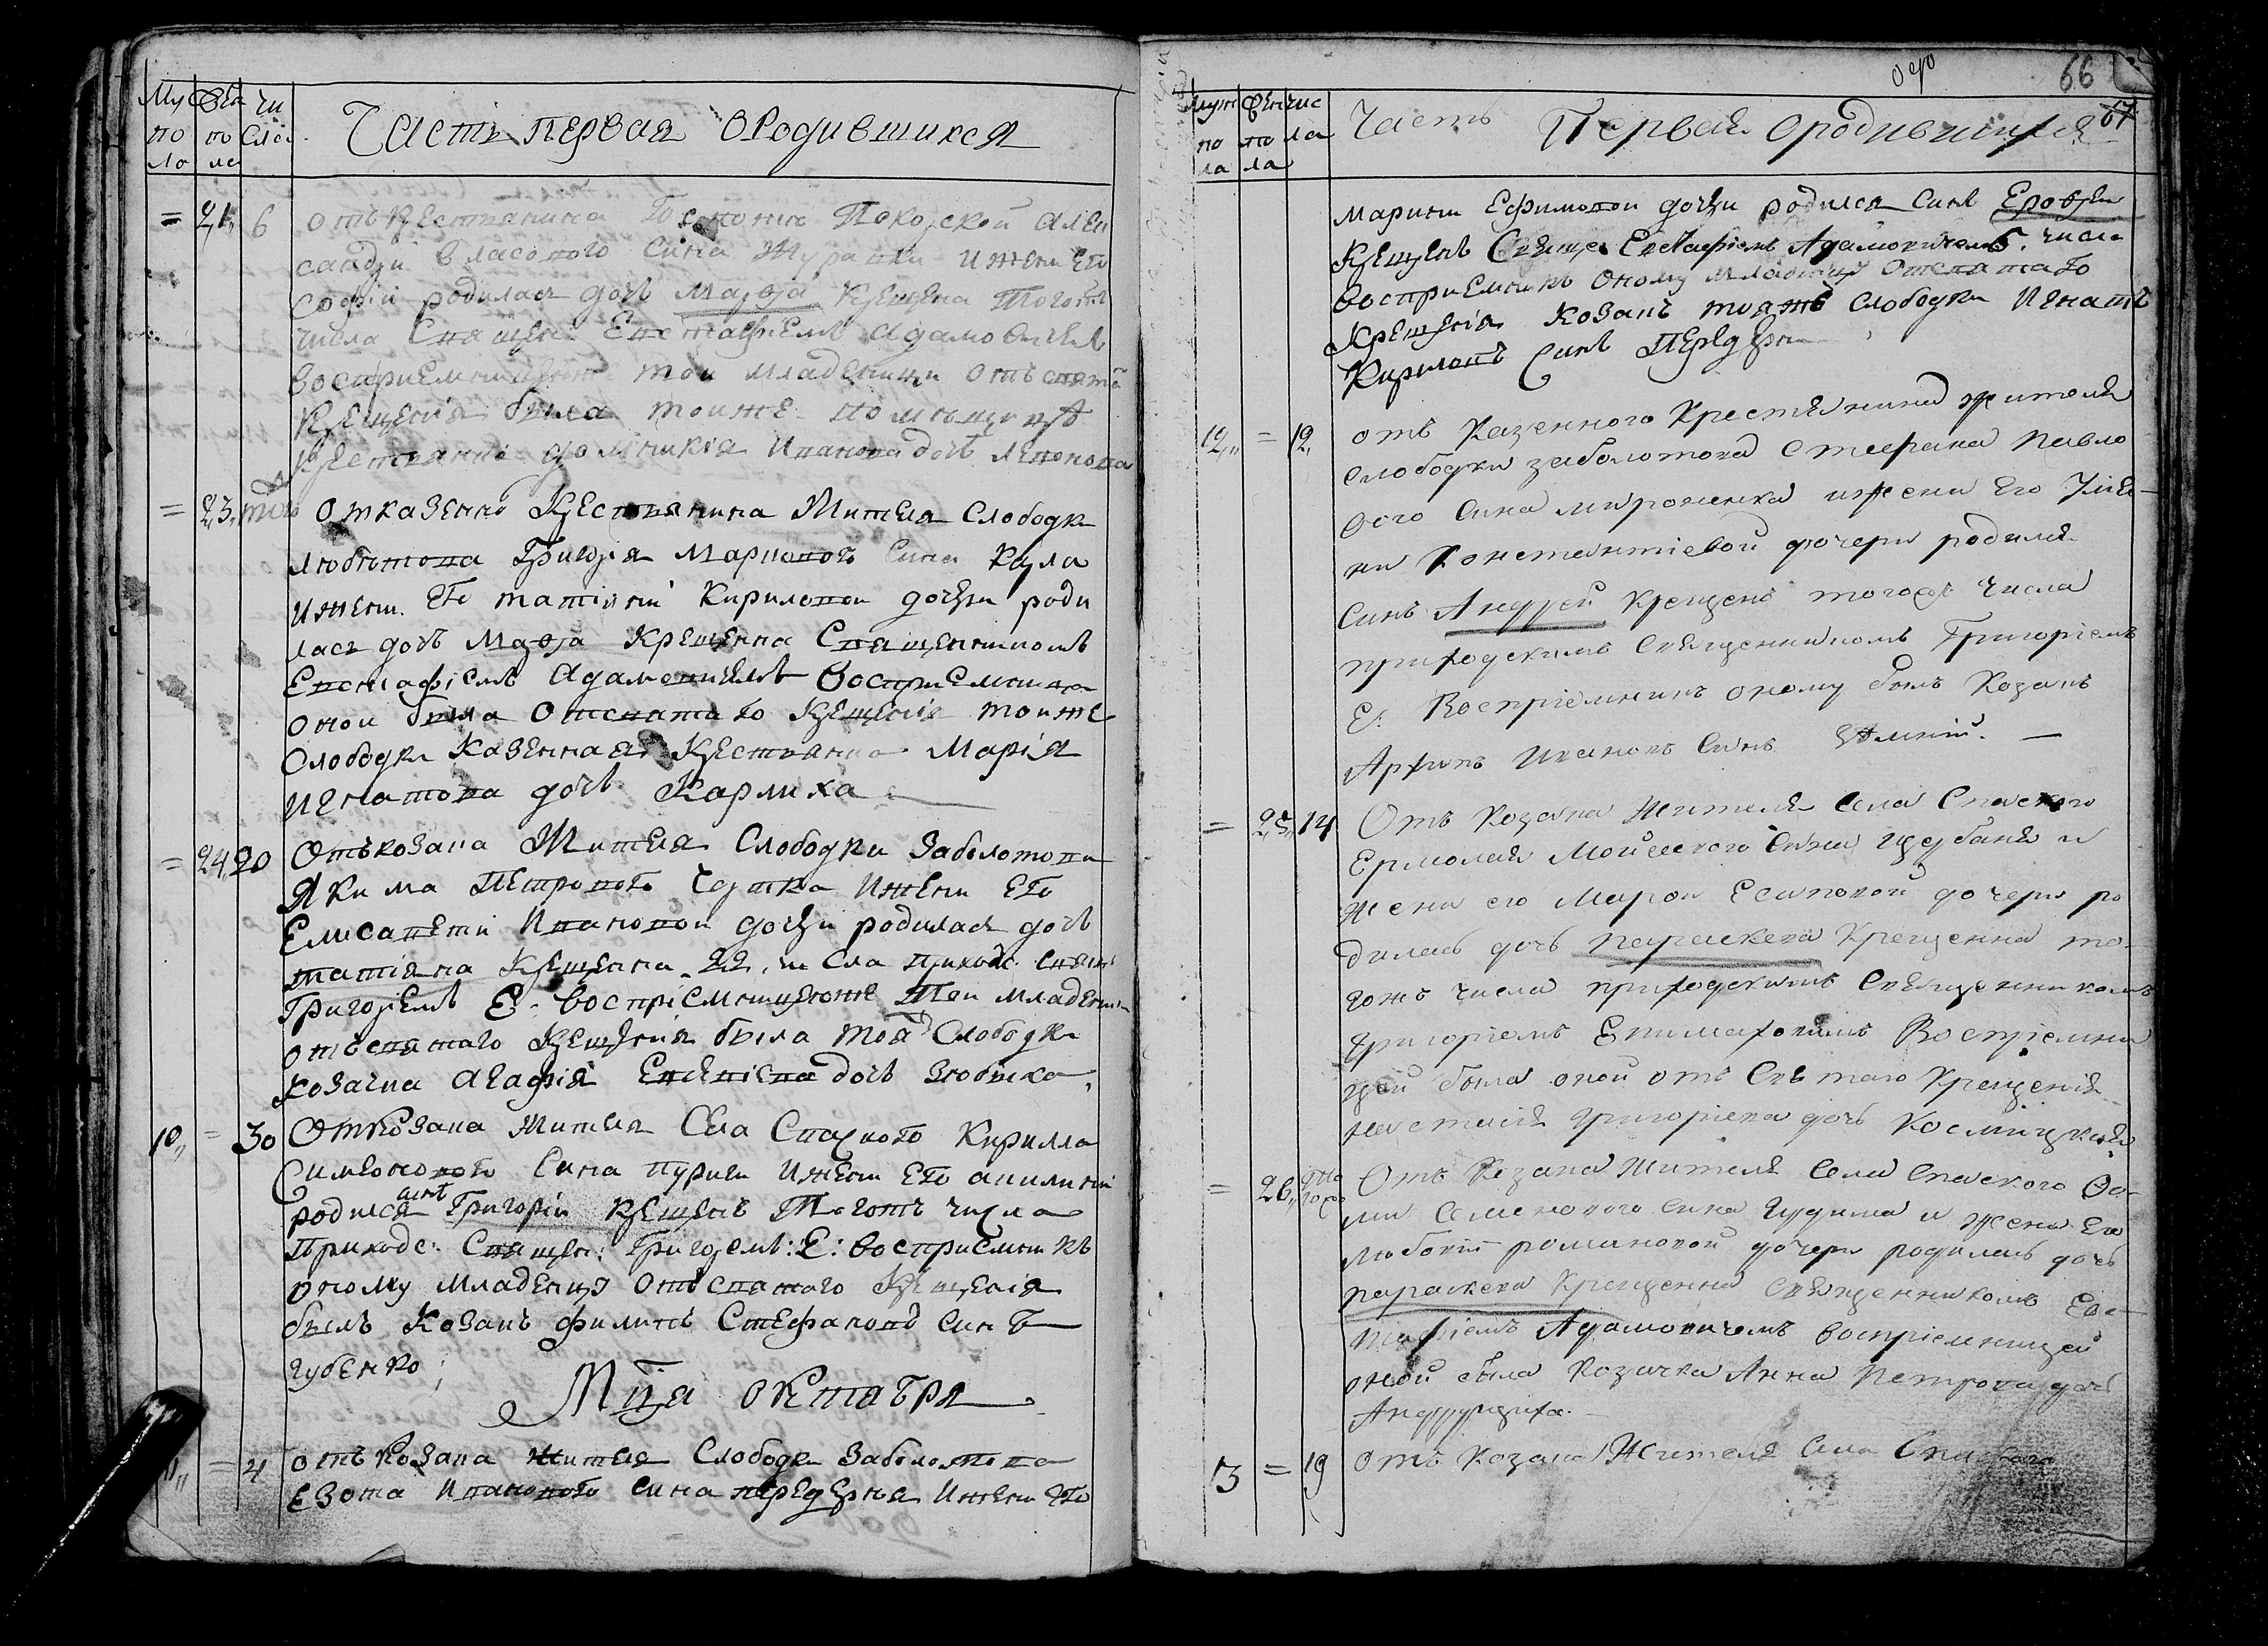 Му Жен Чи
по по сла
ло ла
Часть первая ородившихся
= 21 6 отъ крестянина Госпожи Покорской Алек
сандри Власового сина Журавки ижени Его
Софіи родилась дочь Марѳа крещена Тогожъ
числа Священ: Евстафіемъ Адамовичемъ
Восприемницею той младеници отъ свята
крещенія была тойже помещици
крестянка Домникія Иванова дочь Леонова
= 23 того Отказенно крестянина Жителя Слободки
Люботова Григорія Марковогъ сина Кула
ижени Его татіяни Кириловой дочери роди
лась дочь Марѳа крещенна Священникомъ
Евстафіемъ Адамовичемъ восприемница
оной была отсвятаго крещенія тойже
Слободки казенная крестянка Марія
Игнатова дочь Карлиха
= 24 20 Отъ козака Жителя Слободки Заболотова
Якима Петрового Чертка ижени Его
Елисавети Ивановой дочери родилась дочь
татіяна крещенна 22 числа приходс: свящ:
Григоріемъ Е: воспріемницеюже Той младени
отъ святаго крещенія была тоя Слободки
козачка Агафія Евсевіева дочь Зюбинка
10 = 30 Отъ козака Жителя Села Спаского Кирилла
Симеонового сина пурики ижени Его акилини
родился синъ Григорій крещенъ Тогожъ числа
Приходс: Священ: Григоремъ: Е: восприемникъ
оному младенцу отъ святаго крещенія
былъ козакъ филипъ Стефановъ синъ
губенко;
Мца октавря
11 = 4 отъ козака жителя Слободки Заболотова
Езота Иванового сина передерыя ижени Его
66
67
Муж Жен Чис
по по ла
ла ла
Часть Первая ородившихся
Марини Ефимовой дочери родился синъ Еровей
Крещенъ Священ Евстафіемъ Адамовичемъ 5. числа
восприемникъ оному младенцу отсвятаго
Крещенія козакъ тояжъ слободки Игнатъ
Кириловъ синъ Передерий
12 = 12 отъ Казенного Крестянина жителя
слободки заболотова Стефана Павло
вого сина мироненка ижени Его Улія
ни Константіевой дочери родился
синъ Андрей крещенъ тогожъ числа
приходскимъ священникомъ Григоріемъ
Е: Воспріемникъ оному былъ Козакъ
Архипъ Ивановъ синъ
= 25 14 Отъ Козака Жителя села Спаского
Ермолая Мойсеевого сина Щербаня и
жени его Марѳи Есиповой дочери ро
дилась дочь параскева Крещенна то
гожъ числа приходскимъ священникомъ
Григоріемъ Епимаховимъ Воспріемни
цей была оной отъ Святаго Крещенія
Настасія Григоріева дочь Косминская
= 26 того Отъ Козака Жителя села Спаского Фо
ми Семенового сина Гудима и жени Его
Любови романовой дочери родилась дочь
параскева Крещенна Священникомъ Евс
тафіемъ Адамовичемъ воспріемницей
оной была Козачка Анна Петрова дочь
Андрущиха.
13 = 19 отъ Козака Жителя села Спаского